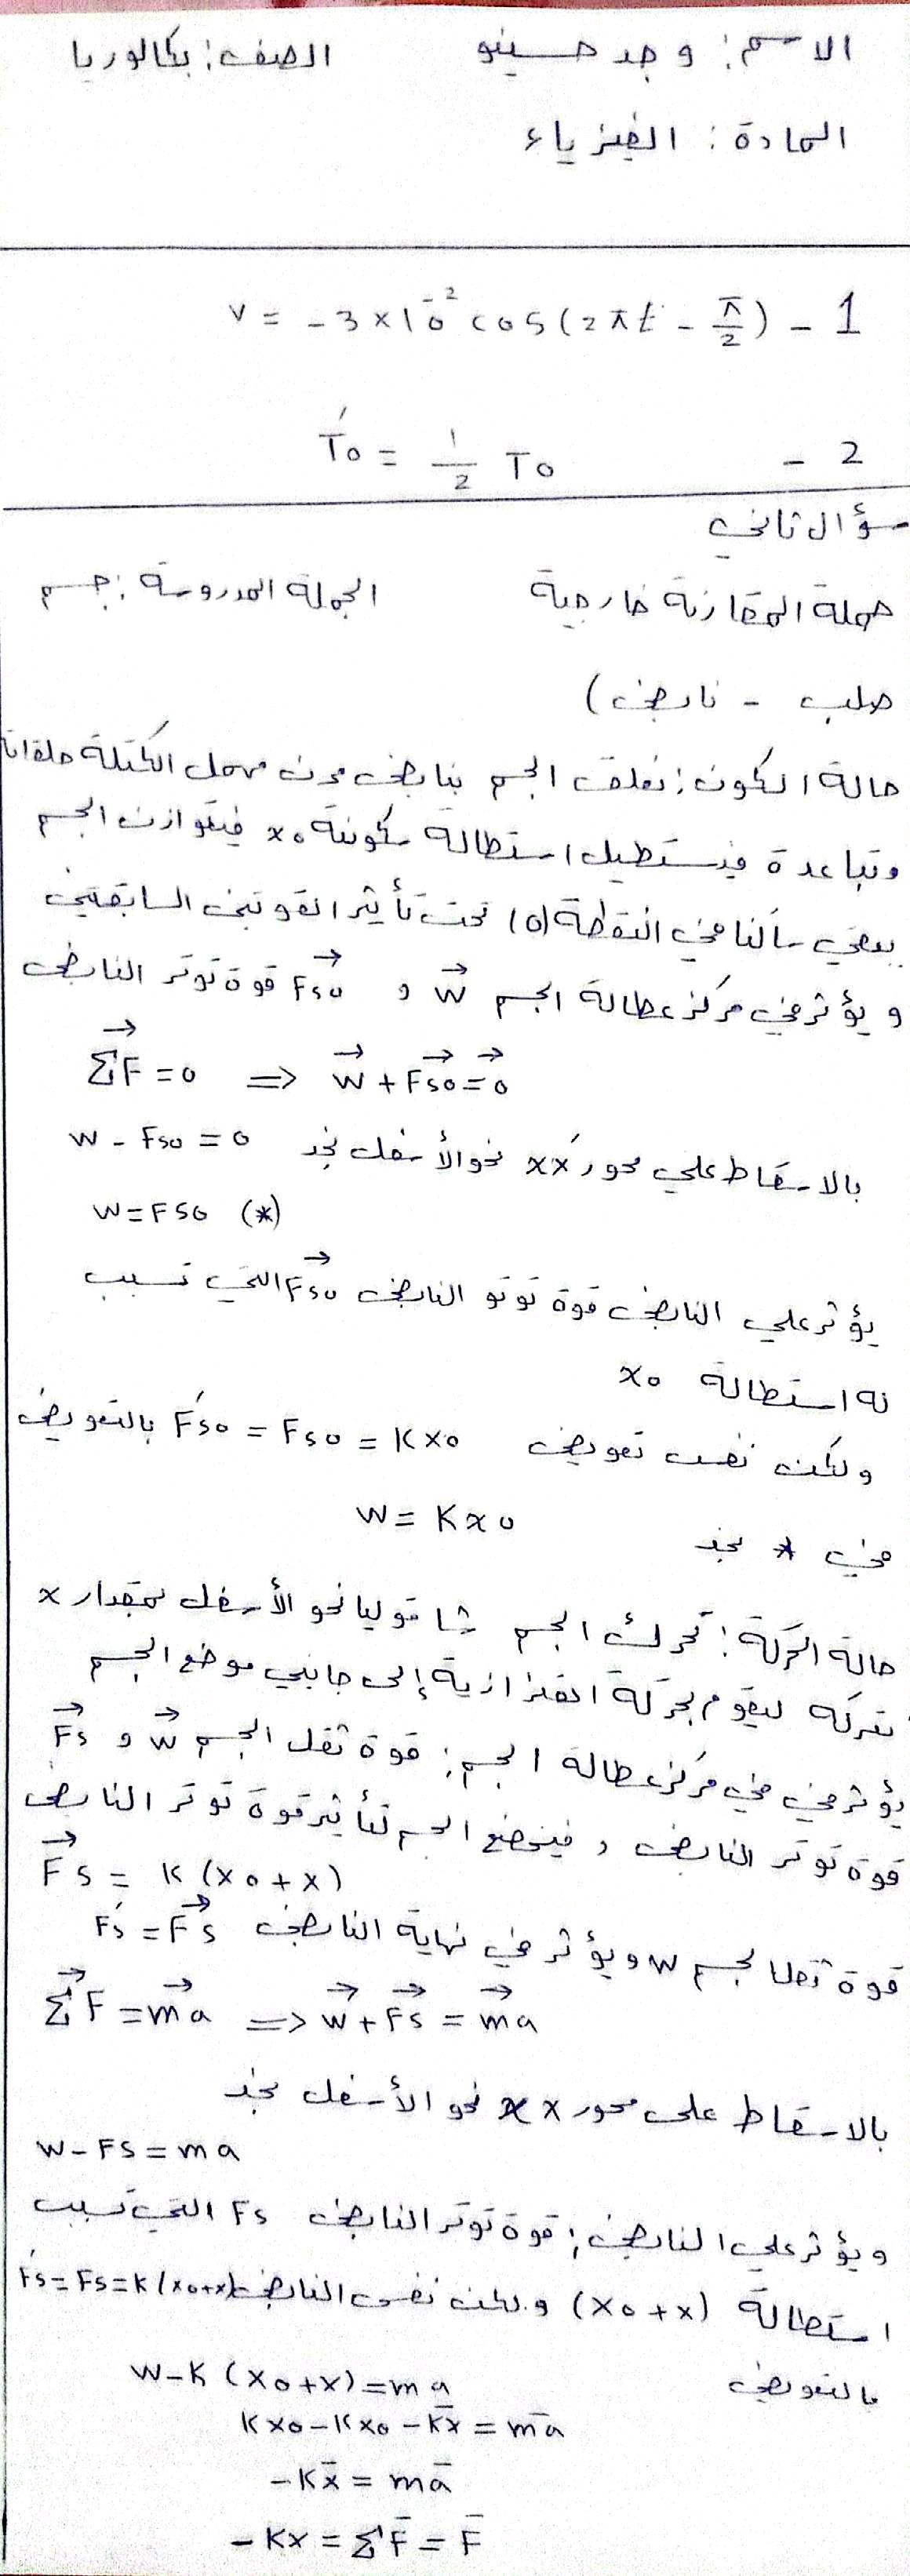 الاسم: وجد حسينو الصف: بكالوريا
المادة: الفيزياء
1 - v = -3×10⁻² cos(2πt - π/2)
2 - T₀' = 1/2 T₀
سؤال ثاني
جملة المقارنة خارجية الجملة المدروسة: جسم
صلب - نابض)
حالة السكون: نعلق الجسم بنابض مرن مهمل الكتلة حلقاته
متباعدة فيستطيل استطالة سكونية x₀ فيتوازن الجسم
يبقى ساكنا في النقطة (o) تحت تأثير القوتين السابقتين
و يؤثر في مركز عطالة الجسم W⃗ و F⃗s₀ قوة توتر النابض
ΣF⃗ = 0 => W⃗ + F⃗s₀ = 0⃗
بالاسقاط على محور xx́ نحو الأسفل نجد W - Fs₀ = 0
W = Fs₀ (*)
يؤثر على النابض قوة توتو النابض F⃗s₀ التي تسبب
له استطالة x₀
ولكن نفس تعويض F́s₀ = Fs₀ = Kx₀ بالتعويض
في * نجد W = Kx₀
حالة الحركة: نحرك الجسم شاقوليا نحو الأسفل بمقدار x
نتركه ليقوم بحركة اهتزازية إلى جانبي موضع الجسم
يؤثر في في مركز عطالة الجسم: قوة ثقل الجسم W⃗ و F⃗s
قوة توتر النابض, فيخضع الجسم لتأثير قوة توتر النابض
F⃗s = K(x₀+x)
قوة ثقل الجسم W ويؤثر في نهاية النابض F́s = F⃗s
ΣF⃗ = ma⃗ => W⃗ + F⃗s = ma⃗
بالاسقاط على محور xx نحو الأسفل نجد
W - Fs = ma
ويؤثر على النابض: قوة توتر النابض Fs التي تسبب
استطالة (x₀+x) ولكن نفس النابض F́s = Fs = K(x₀+x)
بالتعويض W - K(x₀+x) = ma
Kx₀ - Kx₀ - Kx̄ = mā
-Kx̄ = mā
-Kx = ΣF̄ = F̄